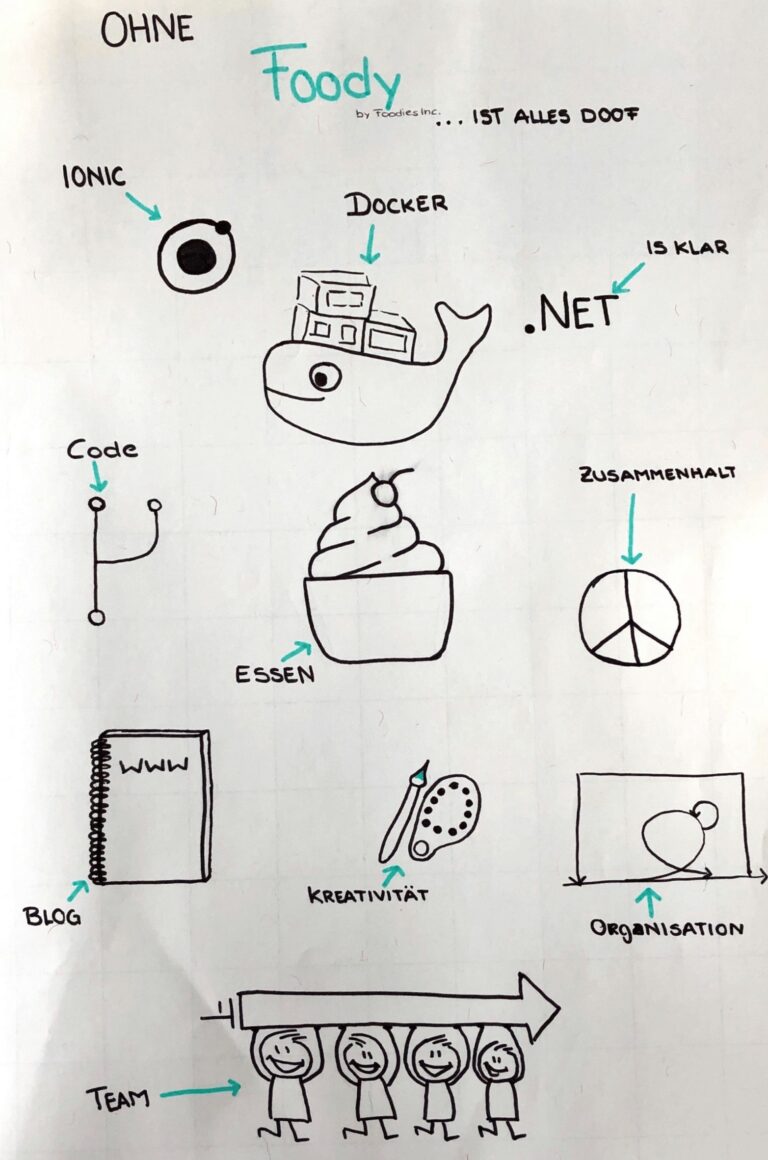 OHNE
Foody
by Foodies Inc.
... IST ALLES DOOF
IONIC
DOCKER
IS KLAR
.NET
Code
ZUSAMMENHALT
ESSEN
WWW
KREATIVITÄT
BLOG
ORgaNISATION
TEAM